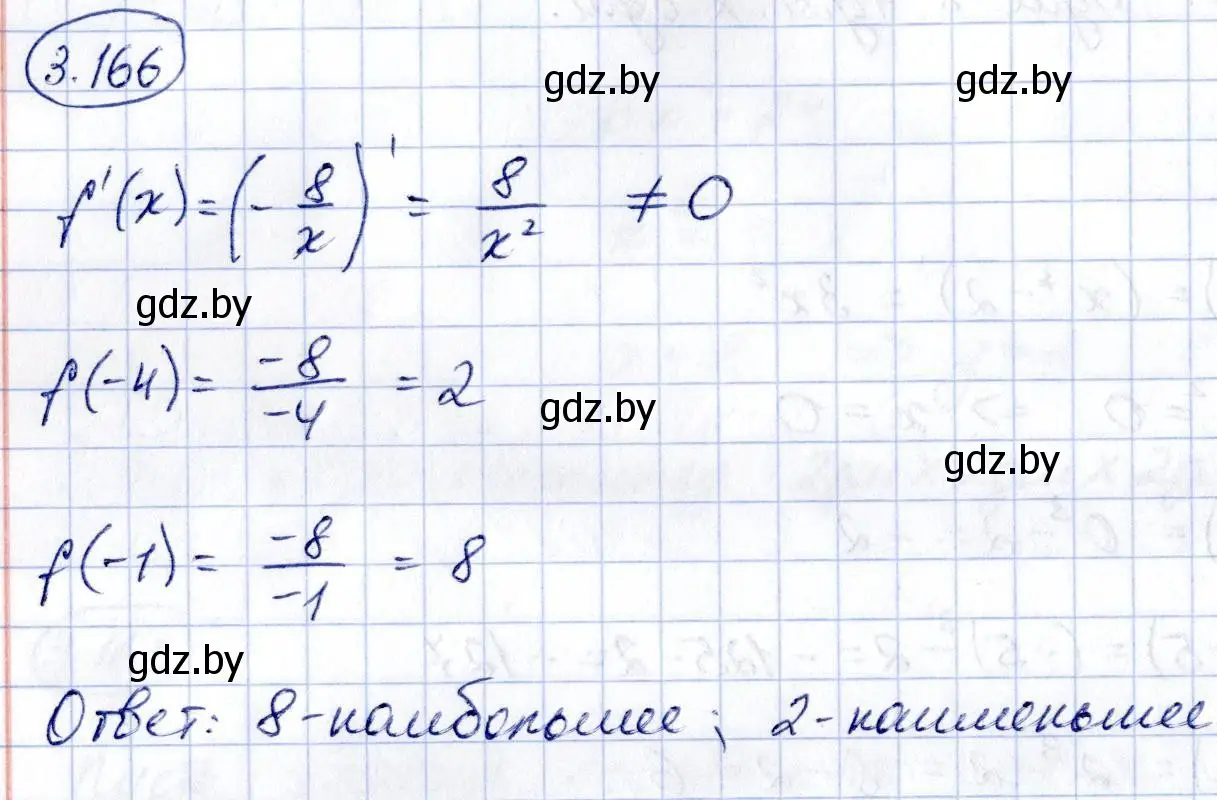 3.166
gdz.by gdz.by
f'(x) = (- 8/x)' = 8/x² ≠ 0
gdz.by
f(-4) = -8/-4 = 2
gdz.by
gdz.by
f(-1) = -8/-1 = 8
gdz.by
Ответ: 8-наибольшее; 2-наименьшее